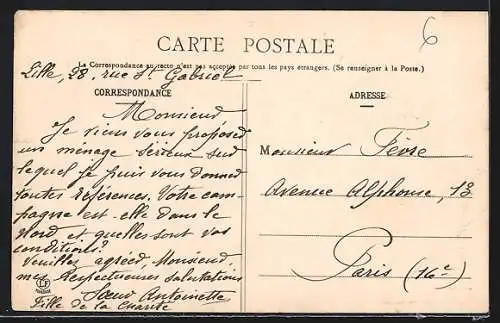 6
CARTE POSTALE
La Correspondance au recto n'est pas acceptée par tous les pays étrangers. (Se renseigner à la Poste.)
Lille, 28, rue St Gabriel
CORRESPONDANCE
Monsieur
Je viens vous proposer
un ménage sérieux sur
lequel je puis vous donner
toutes références. Votre cam-
pagne est-elle dans le
Nord et quelles sont vos
conditions?
Veuillez agréer, Monsieur
mes Respectueuses salutations
Sœur Antoinette
Fille de la Charité
ADRESSE
Monsieur Fèvre
Avenue Alphonse, 13
Paris (16e)